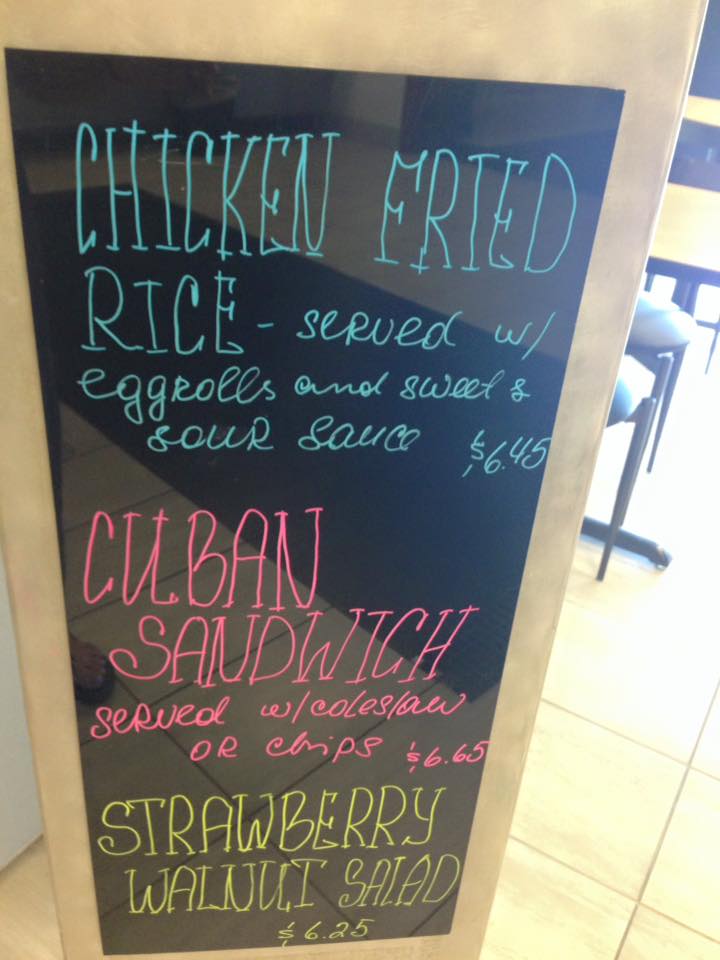 CHICKEN FRIED
RICE - SERVED w/
eggrolls and sweet &
SOUR SAUCE $6.45
CUBAN
SANDWICH
SERVED w/coleslaw
OR chips $6.65
STRAWBERRY
WALNUT SALAD
$6.25